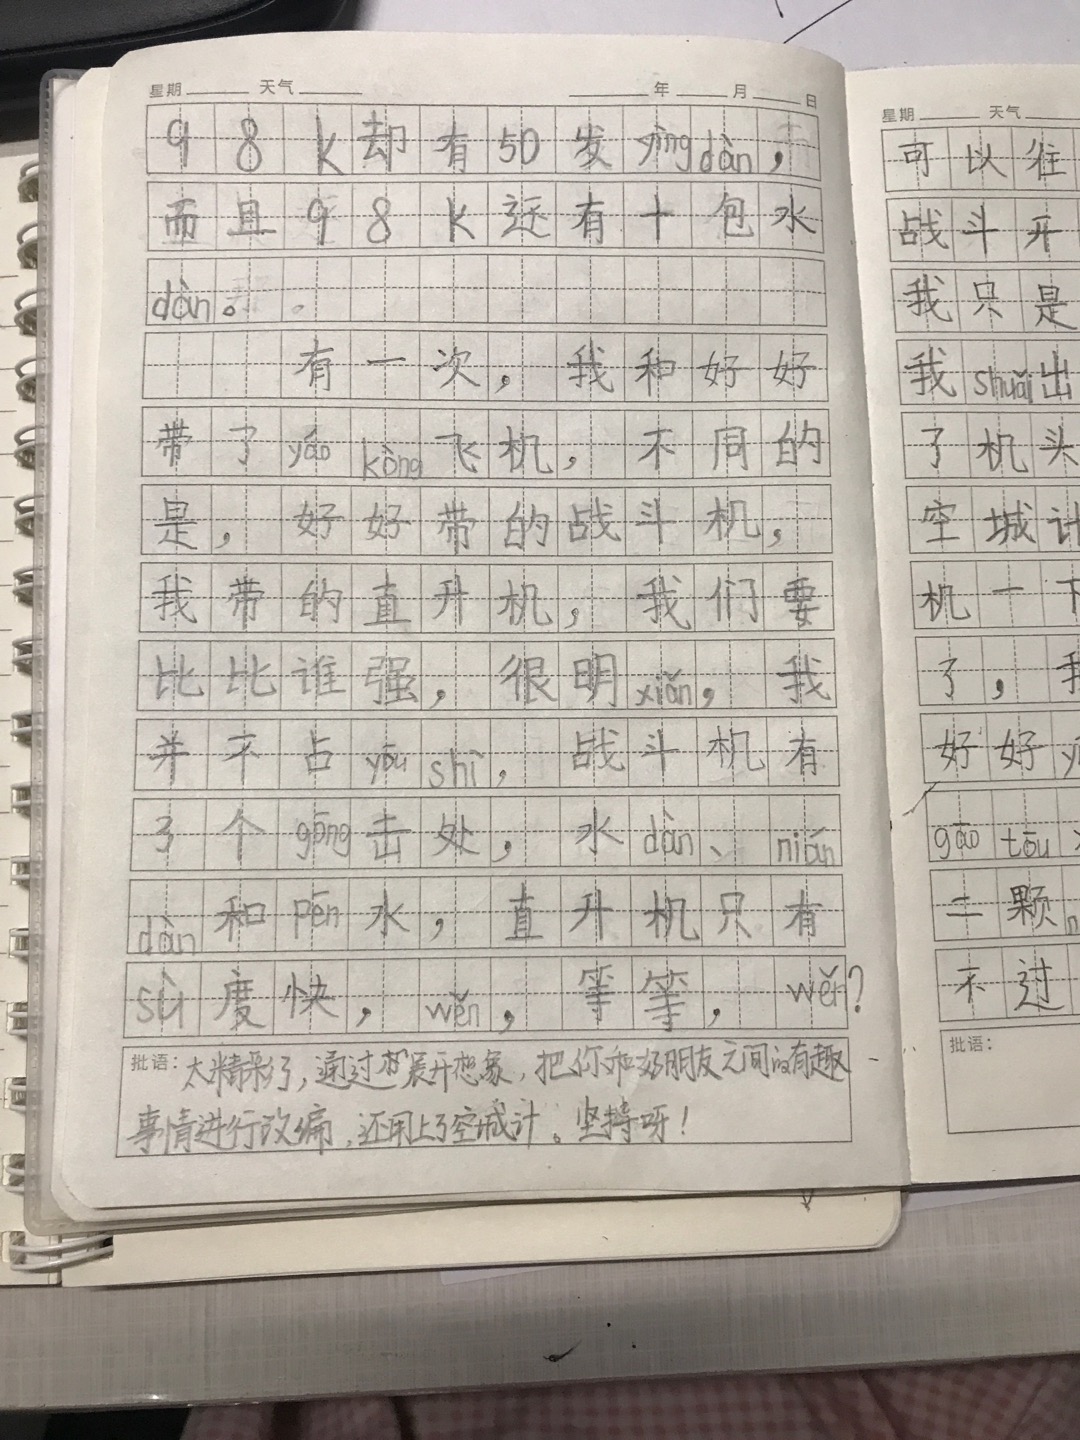 星期 天气 年 月 日
98k却有50发yìngdàn，
而且98K还有十包水
dàn。
有一次，我和好好
带了yáo kòng飞机，不同的
是，好好带的战斗机，
我带的直升机，我们要
比比谁强，很明xiǎn，我
并不占yōu shì，战斗机有
了个gōng击处，水dàn、nián
dàn和pēn水，直升机只有
sù度快，wěn，等等，wěn？
批语：太精彩了，通过展开想象，把你和好朋友之间的有趣
事情进行改编，还用上了空城计。坚持呀！
星期 天气
可以往
战斗开
我只是
我shuǎi出
了机头
空城计
机一下
了，我
好好
gāo tōu
二颗
不过
批语：